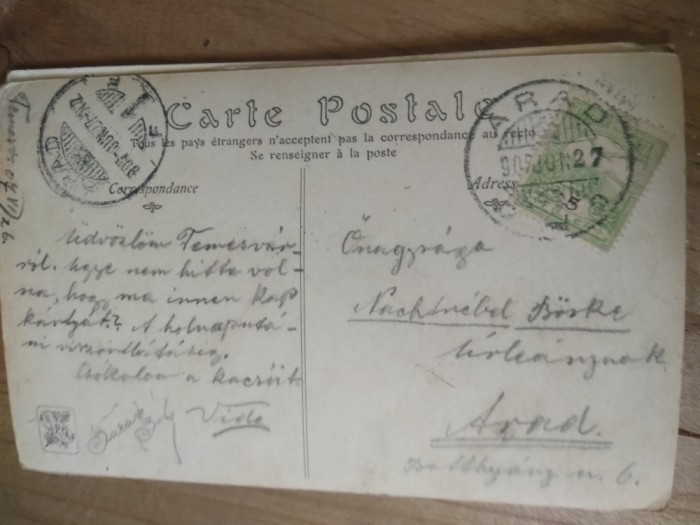 Carte Postale
Tous les pays étrangers n'acceptent pas la correspondance au recto
Se renseigner à la poste
Correspondance
Adresse
ARAD
907 JUN. 27
ARAD
5
Üdvözlöm Temesvár-
ról. Ugye nem hitte vol-
na, hogy ma innen kap
kártyát? A holnaputá-
ni viszontlátásig.
Csókolom a kacsóit
Vida
Őnagysága
Böske
Úrleánynak
Arad.
Batthyány u. 6.